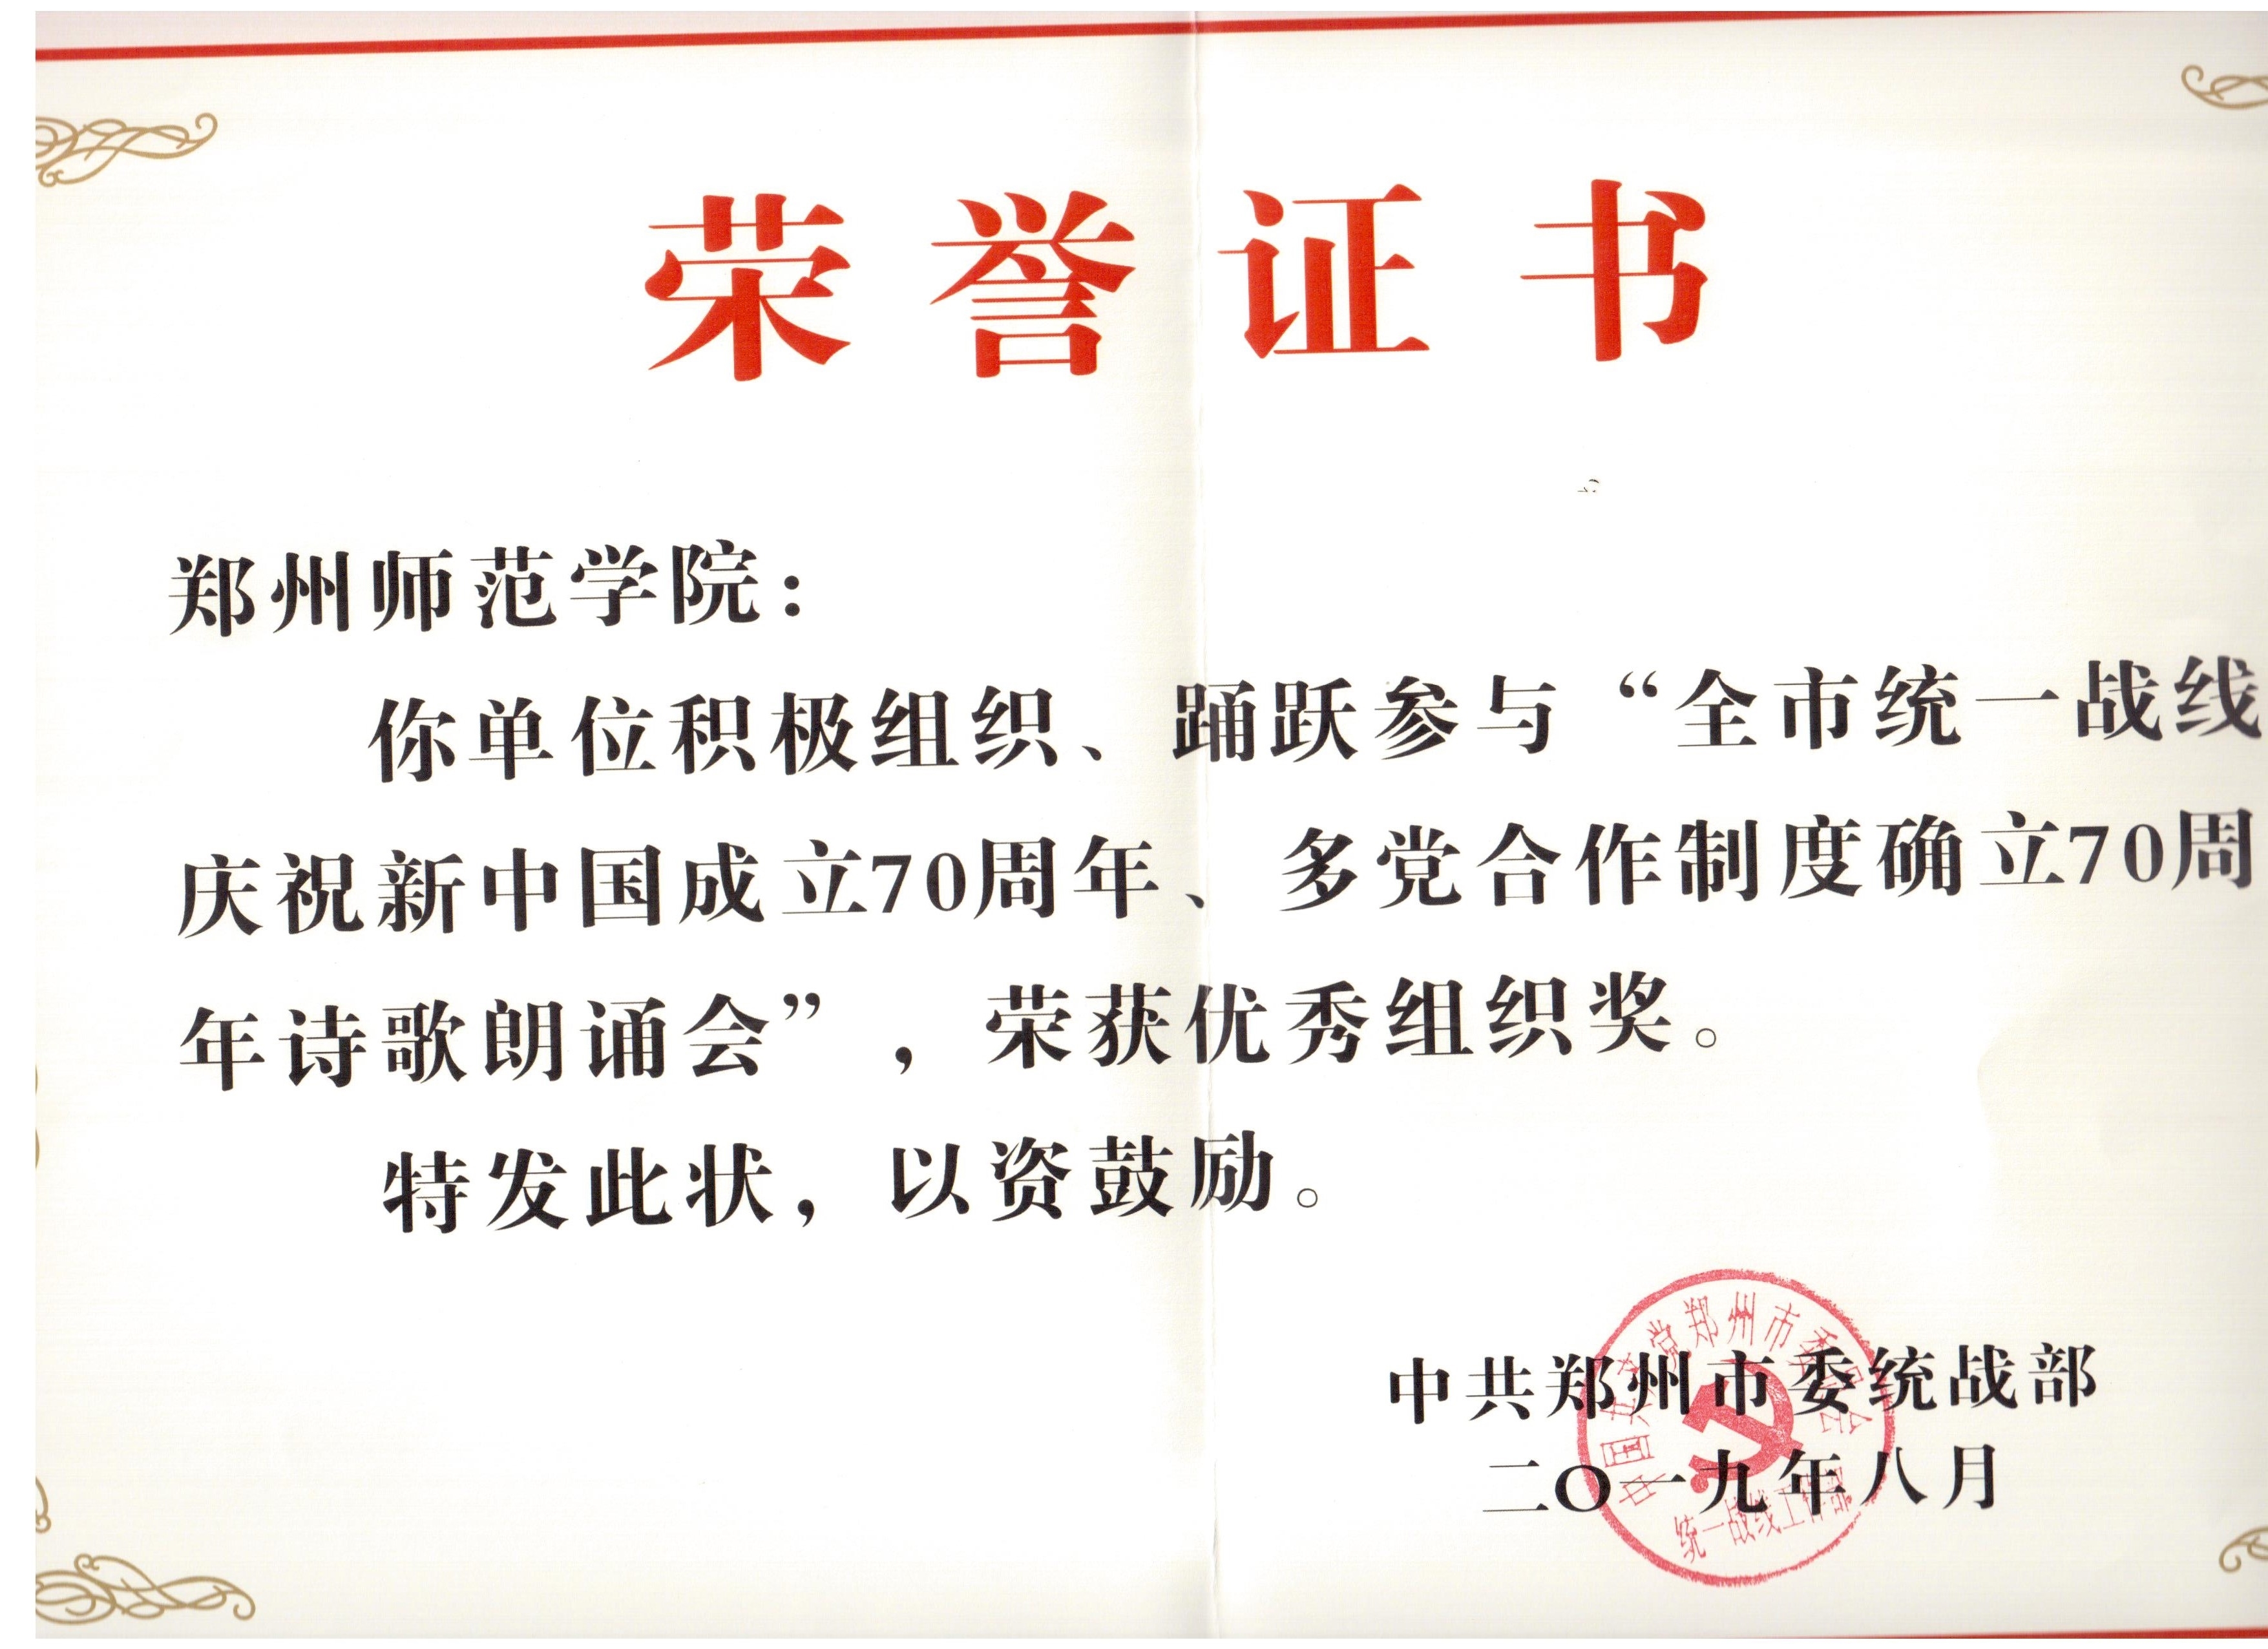 荣誉证书
郑州师范学院：
你单位积极组织、踊跃参与“全市统一战线
庆祝新中国成立70周年、多党合作制度确立70周
年诗歌朗诵会”，荣获优秀组织奖。
特发此状，以资鼓励。
中共郑州市委统战部
二〇一九年八月
中国共产党郑州市委员会
统一战线工作部